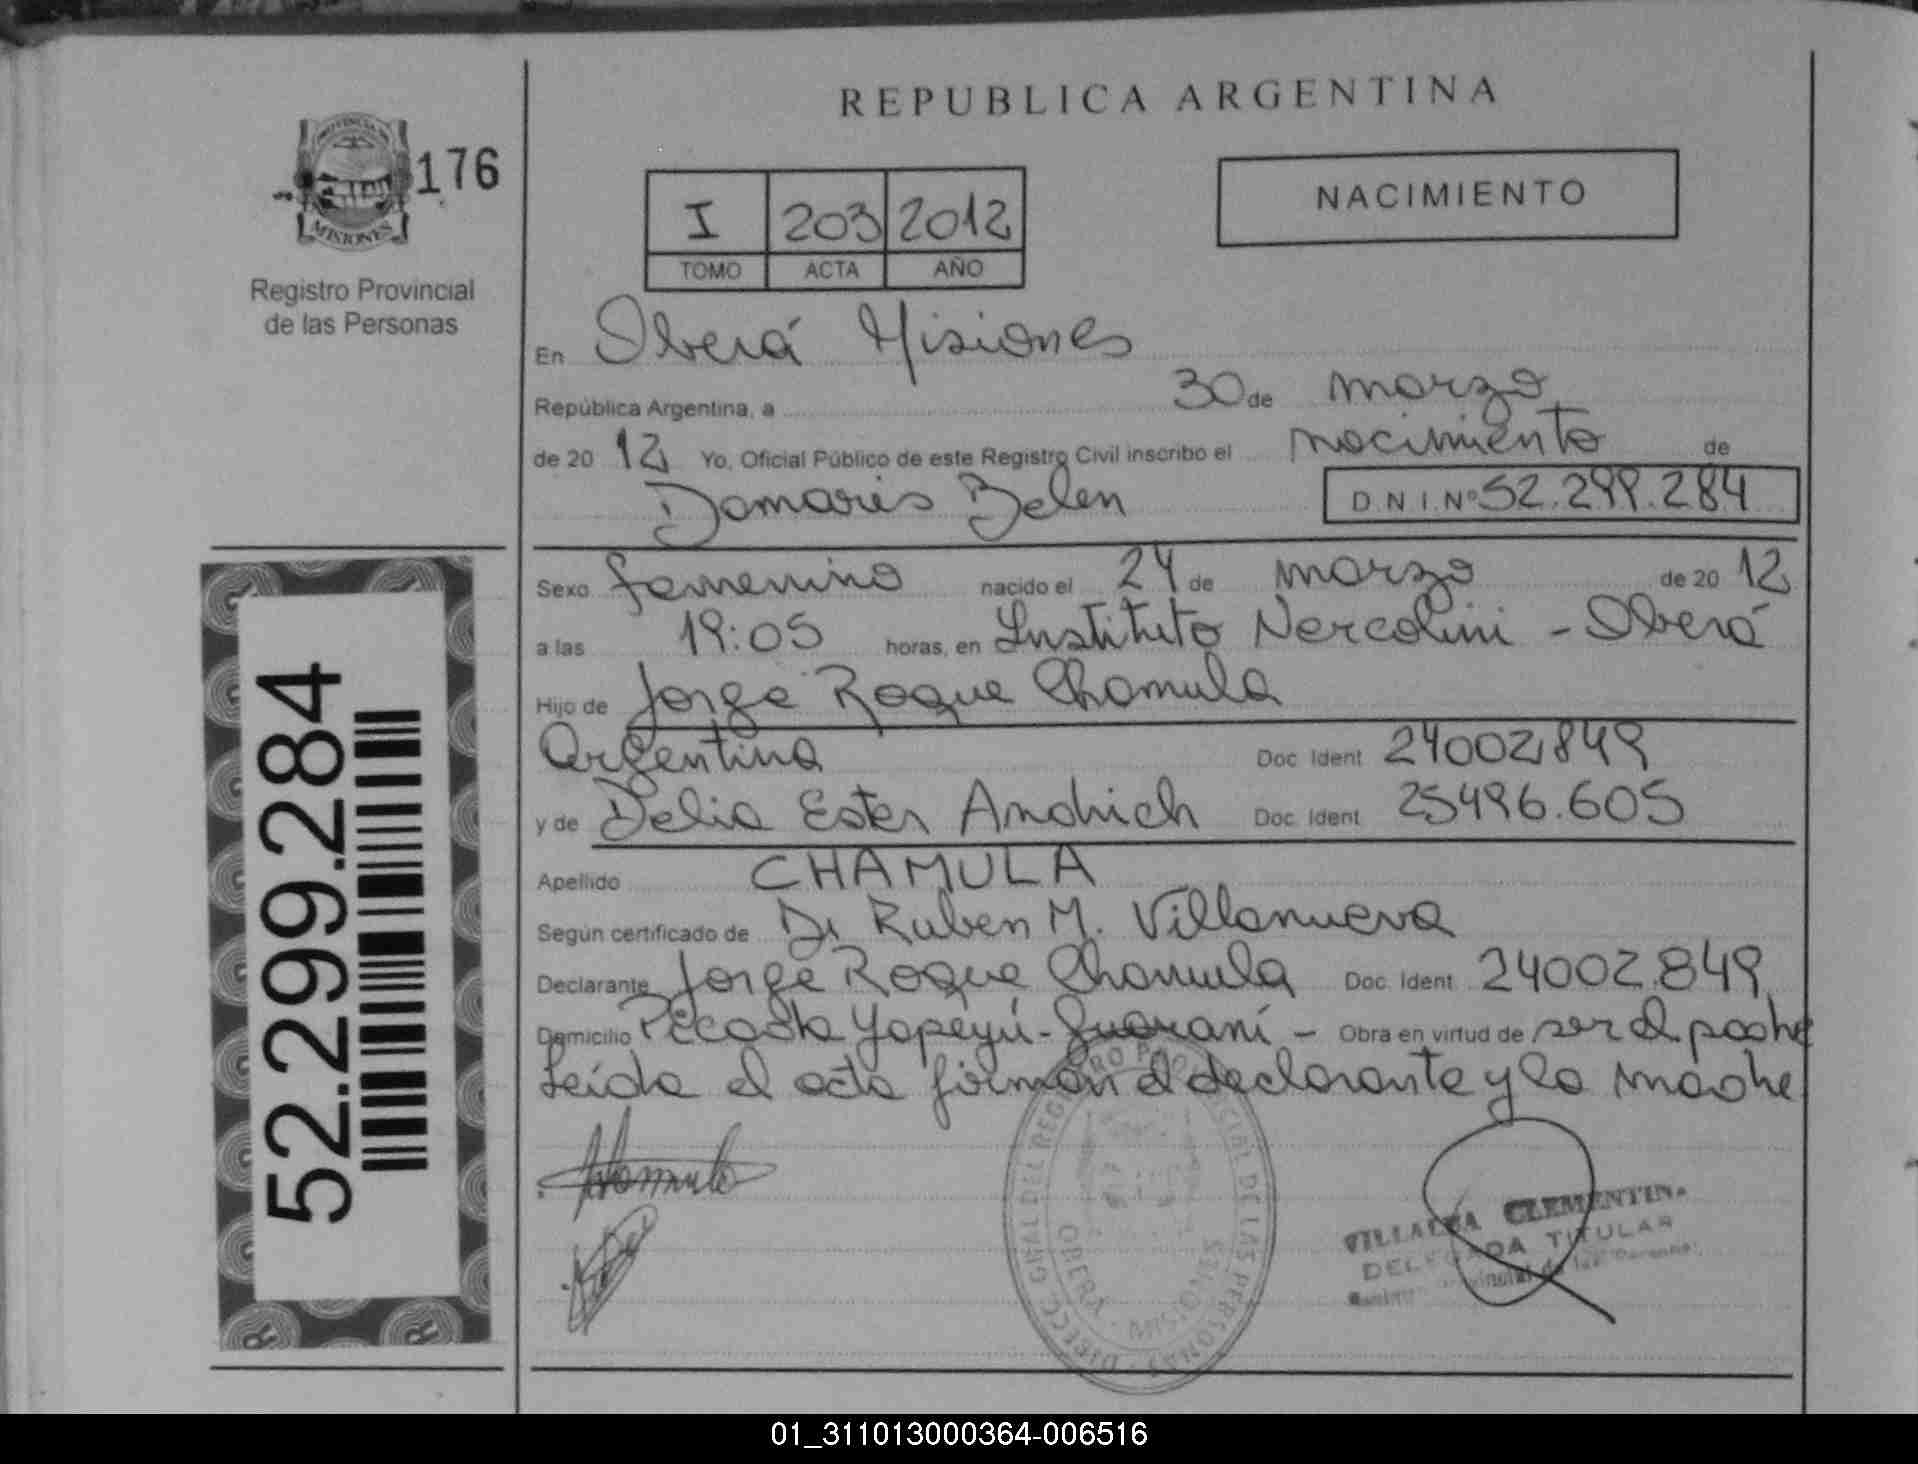 REPUBLICA ARGENTINA
PROVINCIA DE
MISIONES
176
Registro Provincial
de las Personas
I 203 2012
TOMO ACTA AÑO
NACIMIENTO
En Oberá Misiones
República Argentina, a 30 de marzo
de 20 12 Yo, Oficial Público de este Registro Civil inscribo el nacimiento de
Damaris Belen D.N.I.Nº 52.299.284
Sexo femenino nacido el 24 de marzo de 20 12
a las 19:05 horas, en Instituto Nercolini - Oberá
Hijo de Jorge Roque Chamula
Argentina Doc. Ident 24002849
y de Delia Ester Andrich Doc. Ident 25496.605
Apellido CHAMULA
Según certificado de Dr Ruben M. Villanueva
Declarante Jorge Roque Chamula Doc. Ident 24002.849
Domicilio Picada Yapeyú - Guaraní - Obra en virtud de ser el padre
Leída el acta firman el declarante y la madre
52.299.284
Chamula
DIRECC. GRAL DEL REGISTRO PROVINCIAL DE LAS PERSONAS
OBERA - MISIONES
VILLALBA CLEMENTINA
DELEGADA TITULAR
Provincial de las Personas
01_311013000364-006516